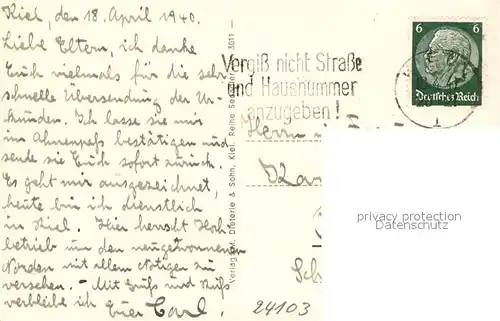 Kiel, den 18. April 1940.
Liebe Eltern, ich danke
Euch vielmals für die sehr
schnelle Übersendung der Ur-
kunden. Ich lasse sie mir
im Ahnenpass bestätigen und
sende sie Euch sofort zurück.
Es geht mir ausgezeichnet,
heute bin ich dienstlich
in Kiel. Hier herrscht Hoch-
betrieb um den neugewonnenen
Norden mit allem Nötigen zu
versehen. - Mit Gruß und Kuss
verbleibe ich Euer Carl.
Verlag M. Dieterle & Sohn, Kiel. Reihe 3011
Vergiß nicht Straße
und Hausnummer
anzugeben!
6 6
Deutsches Reich
Herrn
privacy protection
Datenschutz
24103